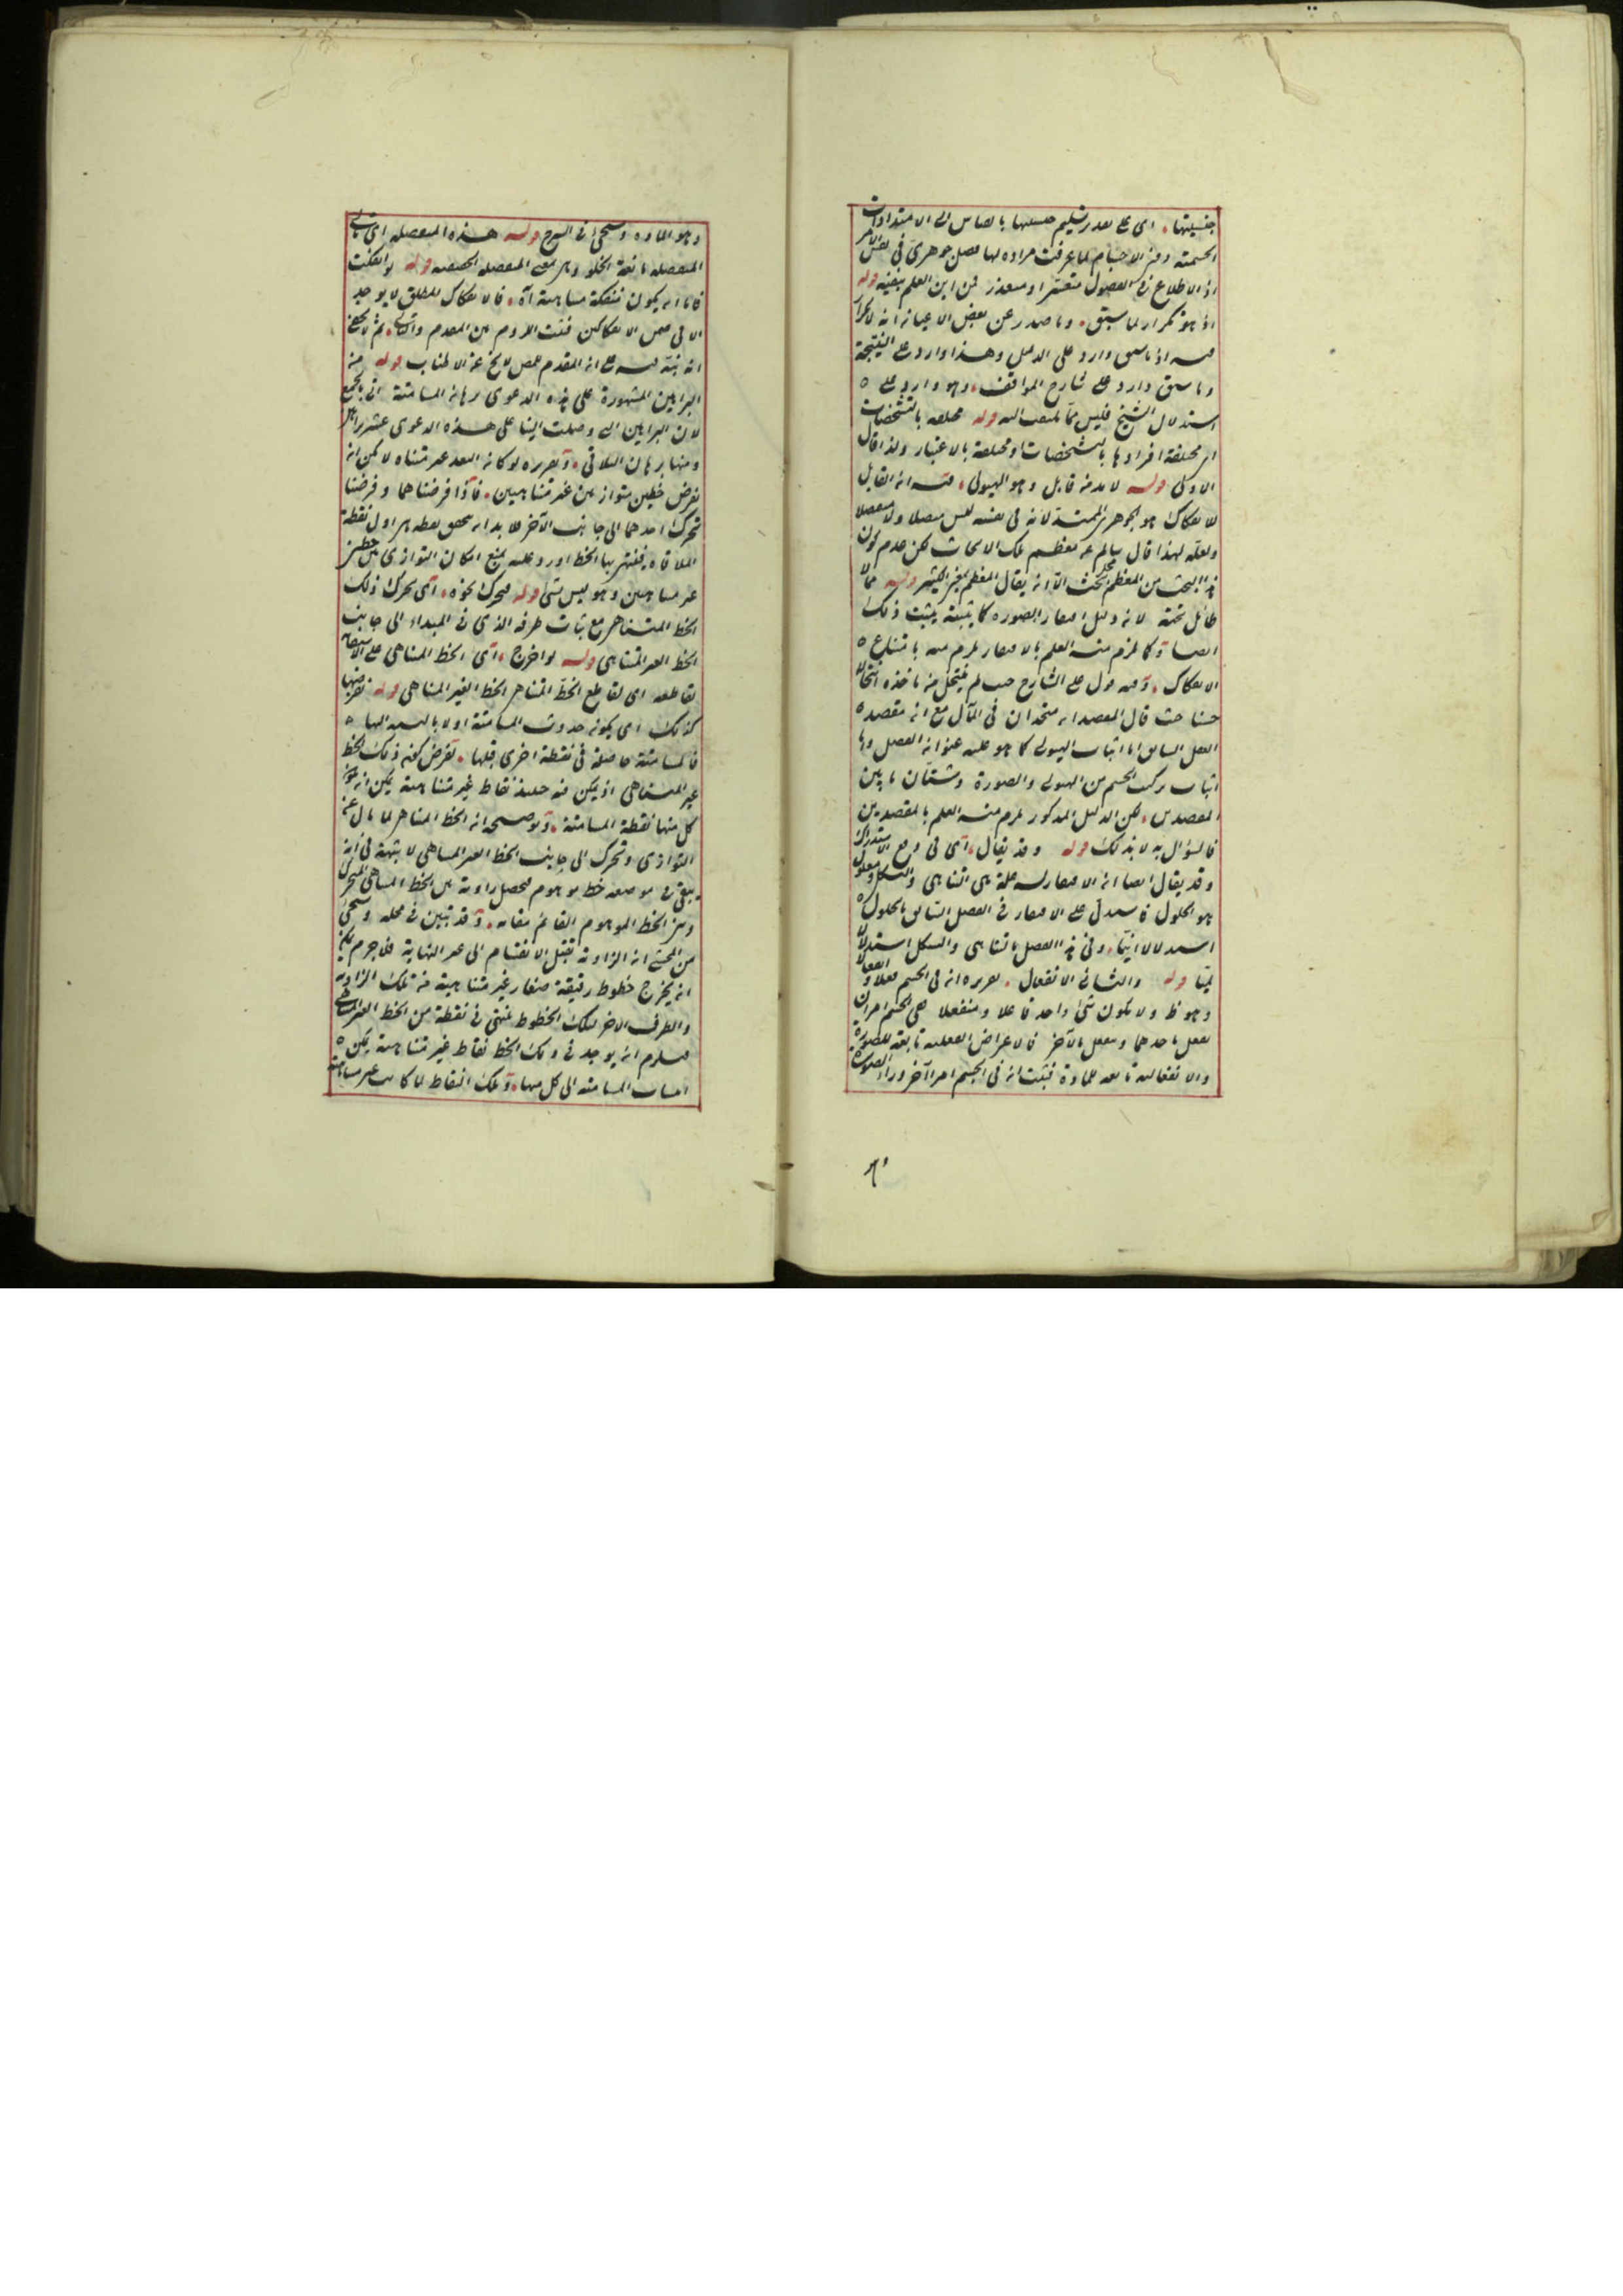 جنسيتها اى على تسليم جنسيتها بالقياس الى الامتدادات
الجسمية دون الاجسام لما عرفت مراده لها فصل جوهرى فى نفس الامر
اذ الاطلاع فى الفصول متعسر او متعذر فمن اين العلم بنفيه قوله
اذ هو تكرار لما سبق وما صدر عن بعض الاعيان انه لا تكرار
فيه اذ ما سبق وارد على الدليل وهذا وارد على النتيجة
وما سبق وارد على شارح المواقف وهو وارد على
استدلال الشيخ فليس مما يلتفت اليه قوله مختلفة بالتشخصات
اى مختلفة افرادها بالتشخصات او مختلفة بالاعتبار ولذا قال
الاولى قوله لا بد من قابل وهو الهيولى فيه ان القابل
للانفكاك هو الجوهر الممتد لانه فى نفسه ليس متصلا ولا منفصلا
ولعله لهذا قال سالم عن معظم تلك الابحاث لكن عدم كون
هذا البحث من المعظم محل بحث الا ان يقال المعظم بمعنى الكثير قوله مما لا
طائل تحته لانه دليل افتقار الصورة كما يثبته يثبت ذلك
ايضا وكما لزم منه العلم بالافتقار لزم منه بامتناع
الانفكاك وفيه قول على الشارح حيث لم ينتحل من ماخذه انتحالا
حسنا حيث قال المقصد ان متحدان فى المآل مع ان مقصد
الفصل السابق اما اثبات الهيولى كما هو عليه عنوان الفصل واما
اثبات تركب الجسم من الهيولى والصورة وشتان ما بين
المقصدين لكن الدليل المذكور لزم منه العلم بالمقصدين
فالسؤال به لا بذلك قوله وقد يقال اى فى دفع الاستدراك
وقد يقال ايضا ان الافتقار له علة هى التناهى والتشكل ومعلول
هو الحلول فاستدل على الافتقار فى الفصل السابق بالحلول
استدلالا انيا وفى هذا الفصل بالتناهى والشكل استدلالا
لميا قوله والثانى الانفعال تقريره ان فى الجسم فعلا وانفعالا
وهو ظ ولا يكون شئ واحد فاعلا ومنفعلا ففى الجسم امران
يفعل باحدهما وينفعل بالآخر فالاعراض الفعلية تابعة للصورة
والانفعالية تابعة للمادة فثبت ان فى الجسم امرا آخر وراء الصورة
وهو المادة وسيجئ فى الشرح قوله هذه المنفصلة اى تالى
المنفصلة مانعة الخلو وهى بمعنى المنفصلة الحقيقية قوله لو انفكت
فاما ان يكون منفكة متناهية آه فالانفكاك المطلق لا يوجد
الا فى ضمن الانفكاكين فثبت اللزوم بين المقدم والتالى ثم لا يخفى
انه نبه فيه على ان المقدم للنص لا يخ عن الاطناب قوله من
البراهين المشهورة على هذه الدعوى برهان المسامتة انى بالجمع
لان البراهين التى وصلت الينا على هذه الدعوى عشر براهين
ومنها برهان التلاقى وتقريره لو كان البعد غير متناه لامكن ان
نفرض خطين متوازيين غير متناهيين فاذا فرضناهما وفرضنا
تحرك احدهما الى جانب الآخر فلا بد ان يتحقق نقطة هى اول نقطة
الملاقاة فينتهى بها الخط اورد عليه بمنع امكان التوازى بين خطين
غير متناهيين وهو ليس بشئ قوله فتحرك نحوه اى تحرك ذلك
الخط المتناهى مع ثبات طرفه الذى فى المبداء الى جانب
الخط الغير المتناهى قوله لو اخرج اى الخط المتناهى على الاستقامة
لقاطعه اى لقاطع الخط المتناهى الخط الغير المتناهى قوله نفرضها
كذلك اى يكون حدوث المسامتة اولا بالنسبة اليها
فالمسامتة حاصلة فى نقطة اخرى قبلها نفرض كون ذلك الخط
غير المتناهى اذ يمكن فيه حينئذ نقاط غير متناهية يمكن ان يكون
كل منها نقطة المسامتة وتوضيحه ان الخط المتناهى لما مال عن
التوازى وتحرك الى جانب الخط الغير المتناهى لا شبهة فى انه
يبقى فى موضعه خط موهوم فيحصل زاوية بين الخط المتناهى المتحرك
وبين الخط الموهوم القائم مقامه وقد تبين فى محله وسيجئ
من المحشى ان الزاوية تقبل الانقسام الى غير النهاية فلا جرم يمكن
ان يخرج خطوط رقيقة صغار غير متناهية من تلك الزاوية
والطرف الاخر لتلك الخطوط ينتهى فى نقطة من الخط الغير المتناهى
فيلزم ان يوجد فى ذلك الخط نقاط غير متناهية يمكن
انتساب المسامتة الى كل منها وتلك النقاط لما كانت غير متناهية